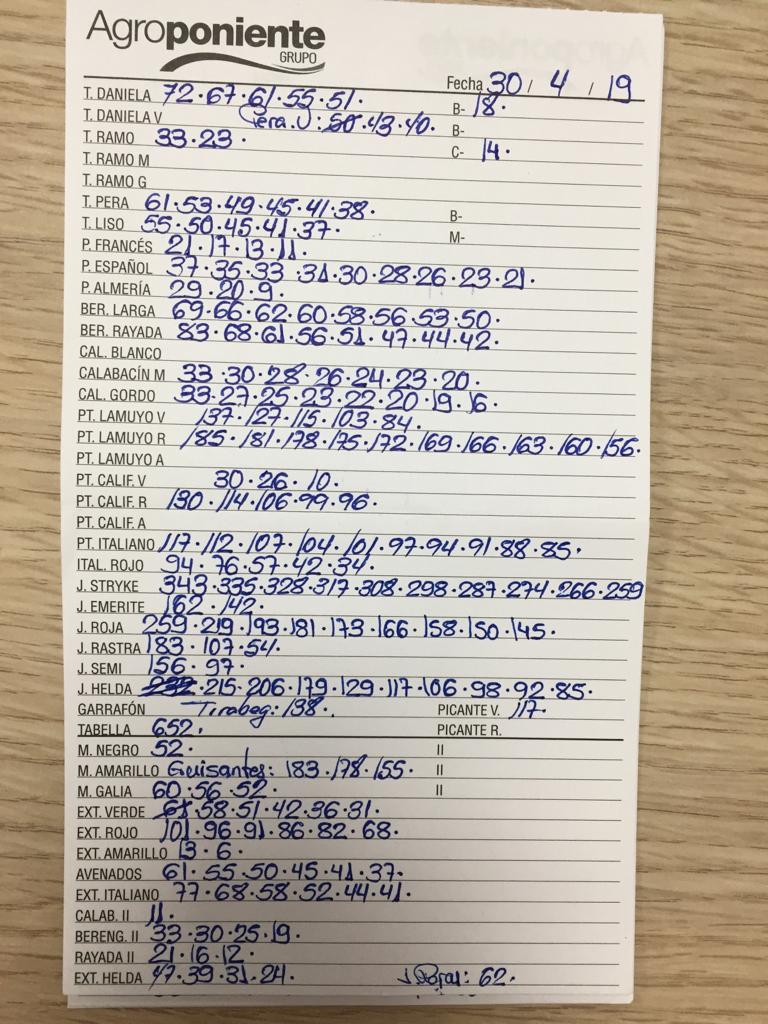 Agroponiente
GRUPO
Fecha 30 / 4 / 19
T. DANIELA 72·67·61·55·51· B- 18·
T. DANIELA V Pera V: 50·43·40· B-
T. RAMO 33·23· C- 14·
T. RAMO M
T. RAMO G
T. PERA 61·53·49·45·41·38· B-
T. LISO 55·50·45·41·37· M-
P. FRANCÉS 21·17·13·11·
P. ESPAÑOL 37·35·33·31·30·28·26·23·21·
P. ALMERÍA 29·20·9·
BER. LARGA 69·66·62·60·58·56·53·50·
BER. RAYADA 83·68·61·56·51·47·44·42·
CAL. BLANCO
CALABACÍN M 33·30·28·26·24·23·20·
CAL. GORDO 33·27·25·23·22·20·19·16·
PT. LAMUYO V 137·127·115·103·84·
PT. LAMUYO R 185·181·178·175·172·169·166·163·160·156·
PT. LAMUYO A
PT. CALIF. V 30·26·10·
PT. CALIF. R 130·114·106·99·96·
PT. CALIF. A
PT. ITALIANO 117·112·107·104·101·97·94·91·88·85·
ITAL. ROJO 94·76·57·42·34·
J. STRYKE 343·335·328·317·308·298·287·274·266·259
J. EMERITE 162·142·
J. ROJA 259·219·193·181·173·166·158·150·145·
J. RASTRA 183·107·54·
J. SEMI 156·97·
J. HELDA 215·206·179·129·117·106·98·92·85·
GARRAFÓN Tirabeq: 138· PICANTE V. 117·
TABELLA 652· PICANTE R.
M. NEGRO 52· II
M. AMARILLO Guisantes: 183·178·155· II
M. GALIA 60·56·52· II
EXT. VERDE 58·51·42·36·31·
EXT. ROJO 101·96·91·86·82·68·
EXT. AMARILLO 13·6·
AVENADOS 61·55·50·45·41·37·
EXT. ITALIANO 77·68·58·52·44·41·
CALAB. II 11·
BERENG. II 33·30·25·19·
RAYADA II 21·16·12·
EXT. HELDA 47·39·31·24· 62·